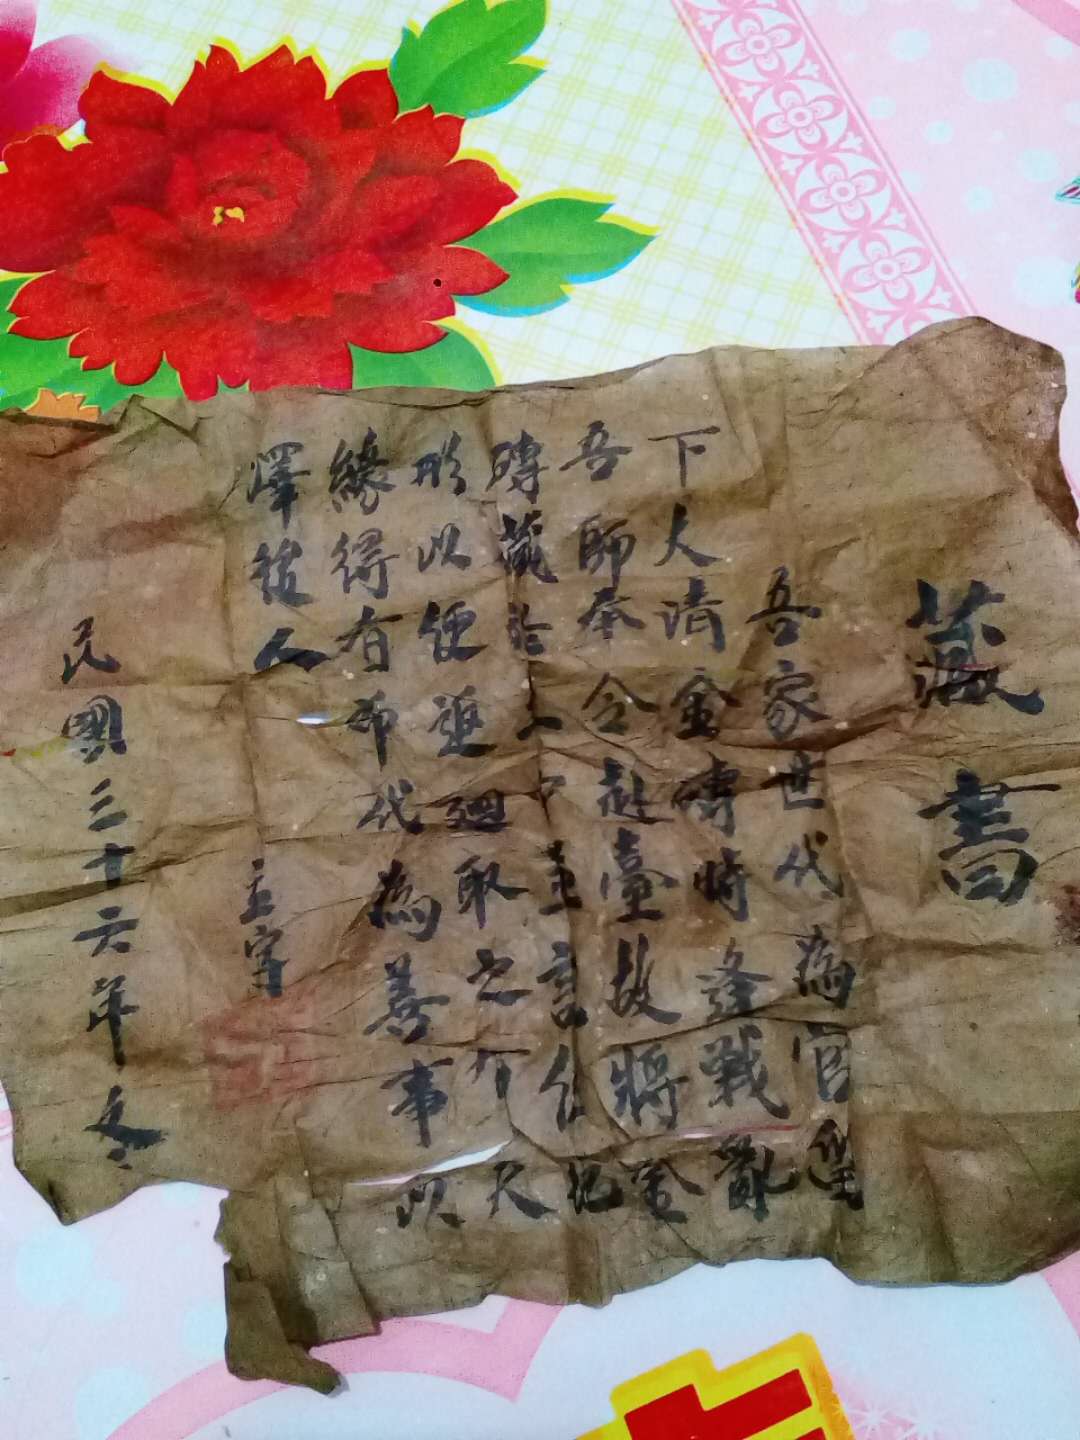 藏書
吾家世代為官遺
下大清金磚時逢戰亂
吾師奉令赴臺故將金
磚藏於上言位記
形以便返迴取之有天
緣得者命代為善事以
澤後人
立字
民國三十六年冬